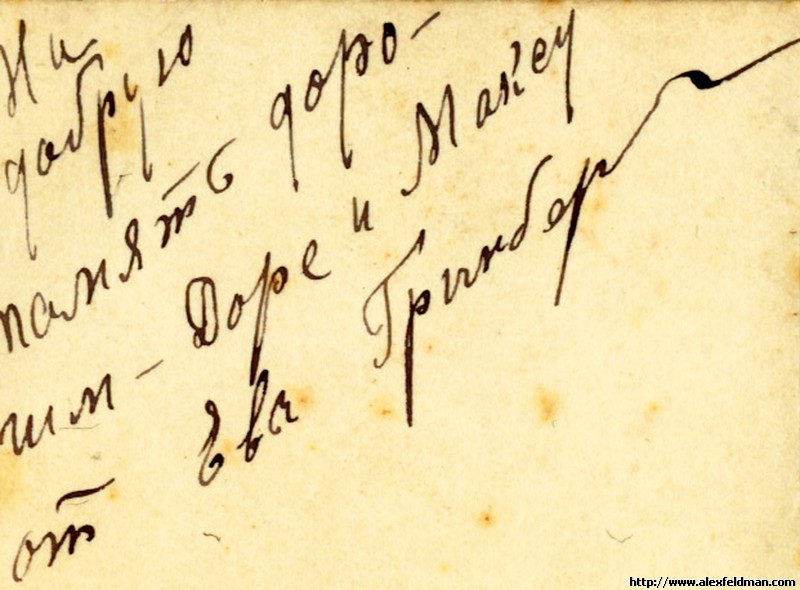 На
добрую
память доро-
гим - Доре и Максу
от Ева Гринберг
http://www.alexfeldman.com